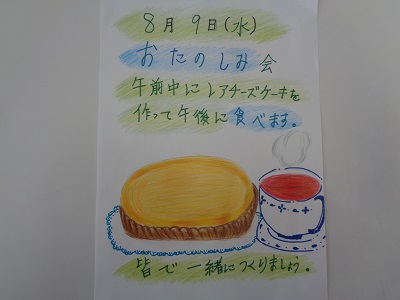 8月9日(水)
おたのしみ会
午前中にレアチーズケーキを
作って午後に食べます。
皆で一緒につくりましょう。